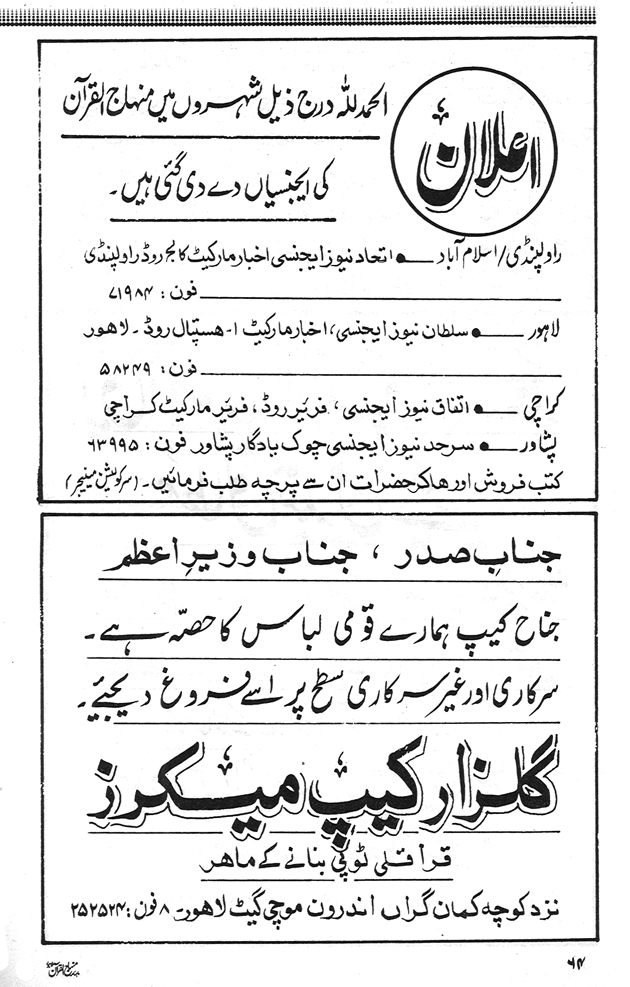 اعلان
الحمدللہ درج ذیل شہروں میں منہاج القرآن
کی ایجنسیاں دے دی گئی ہیں۔
راولپنڈی/اسلام آباد ● اتحاد نیوز ایجنسی اخبار مارکیٹ کالج روڈ راولپنڈی
فون: ۷۱۹۸۴
لاہور ● سلطان نیوز ایجنسی، اخبار مارکیٹ ۱- ھسپتال روڈ۔ لاھور
فون: ۵۸۲۴۹
کراچی ● اتفاق نیوز ایجنسی، فریر روڈ، فریر مارکیٹ کراچی
پشاور ● سرحد نیوز ایجنسی چوک یادگار پشاور فون: ۶۳۹۹۵
کتب فروش اور ھاکر حضرات ان سے پرچہ طلب فرمائیں۔ (سرکولیشن مینیجر)
جناب صدر ، جناب وزیرِ اعظم
جناح کیپ ہمارے قومی لباس کا حصّہ ہے۔
سرکاری اور غیر سرکاری سطح پر اسے فروغ دیجیئے۔
گلزار کیپ میکرز
قراقلی ٹوپی بنانے کے ماھر
نزد کوچہ کمان گراں اندرون موچی گیٹ لاھور۔ ۸ فون: ۲۵۲۵۲۴
۶۴